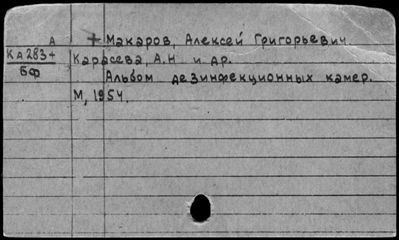 А + Макаров, Алексей Григорьевич.
Ка283+ Карасева, А.Н и др.
бф Альбом дезинфекционных камер.
М, 1954.